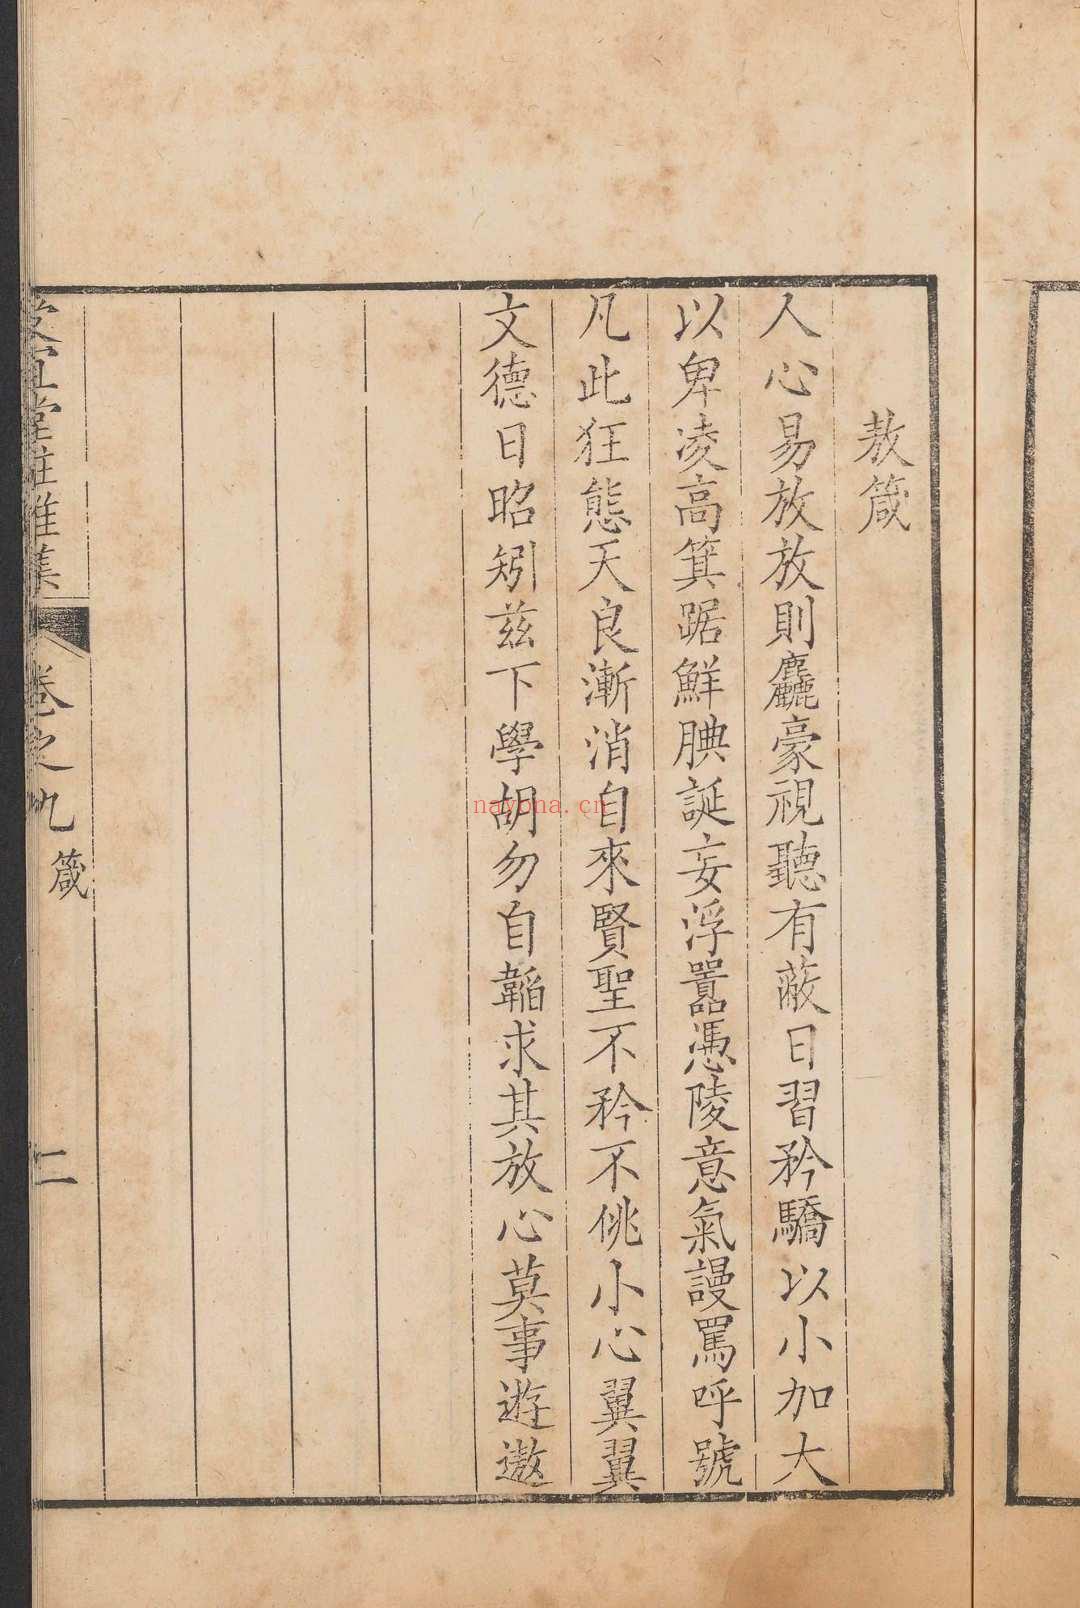 敖箴
人心易放放則麤豪視聽有蔽日習矜驕以小加大
以卑凌高箕踞鮮腆誕妄浮囂憑陵意氣謾罵呼號
凡此狂態天良漸消自來賢聖不矜不佻小心翼翼
文德日昭矧茲下學胡勿自韜求其放心莫事遊遨
宜堂註雅集
卷之九 箴
二
nayona.cn